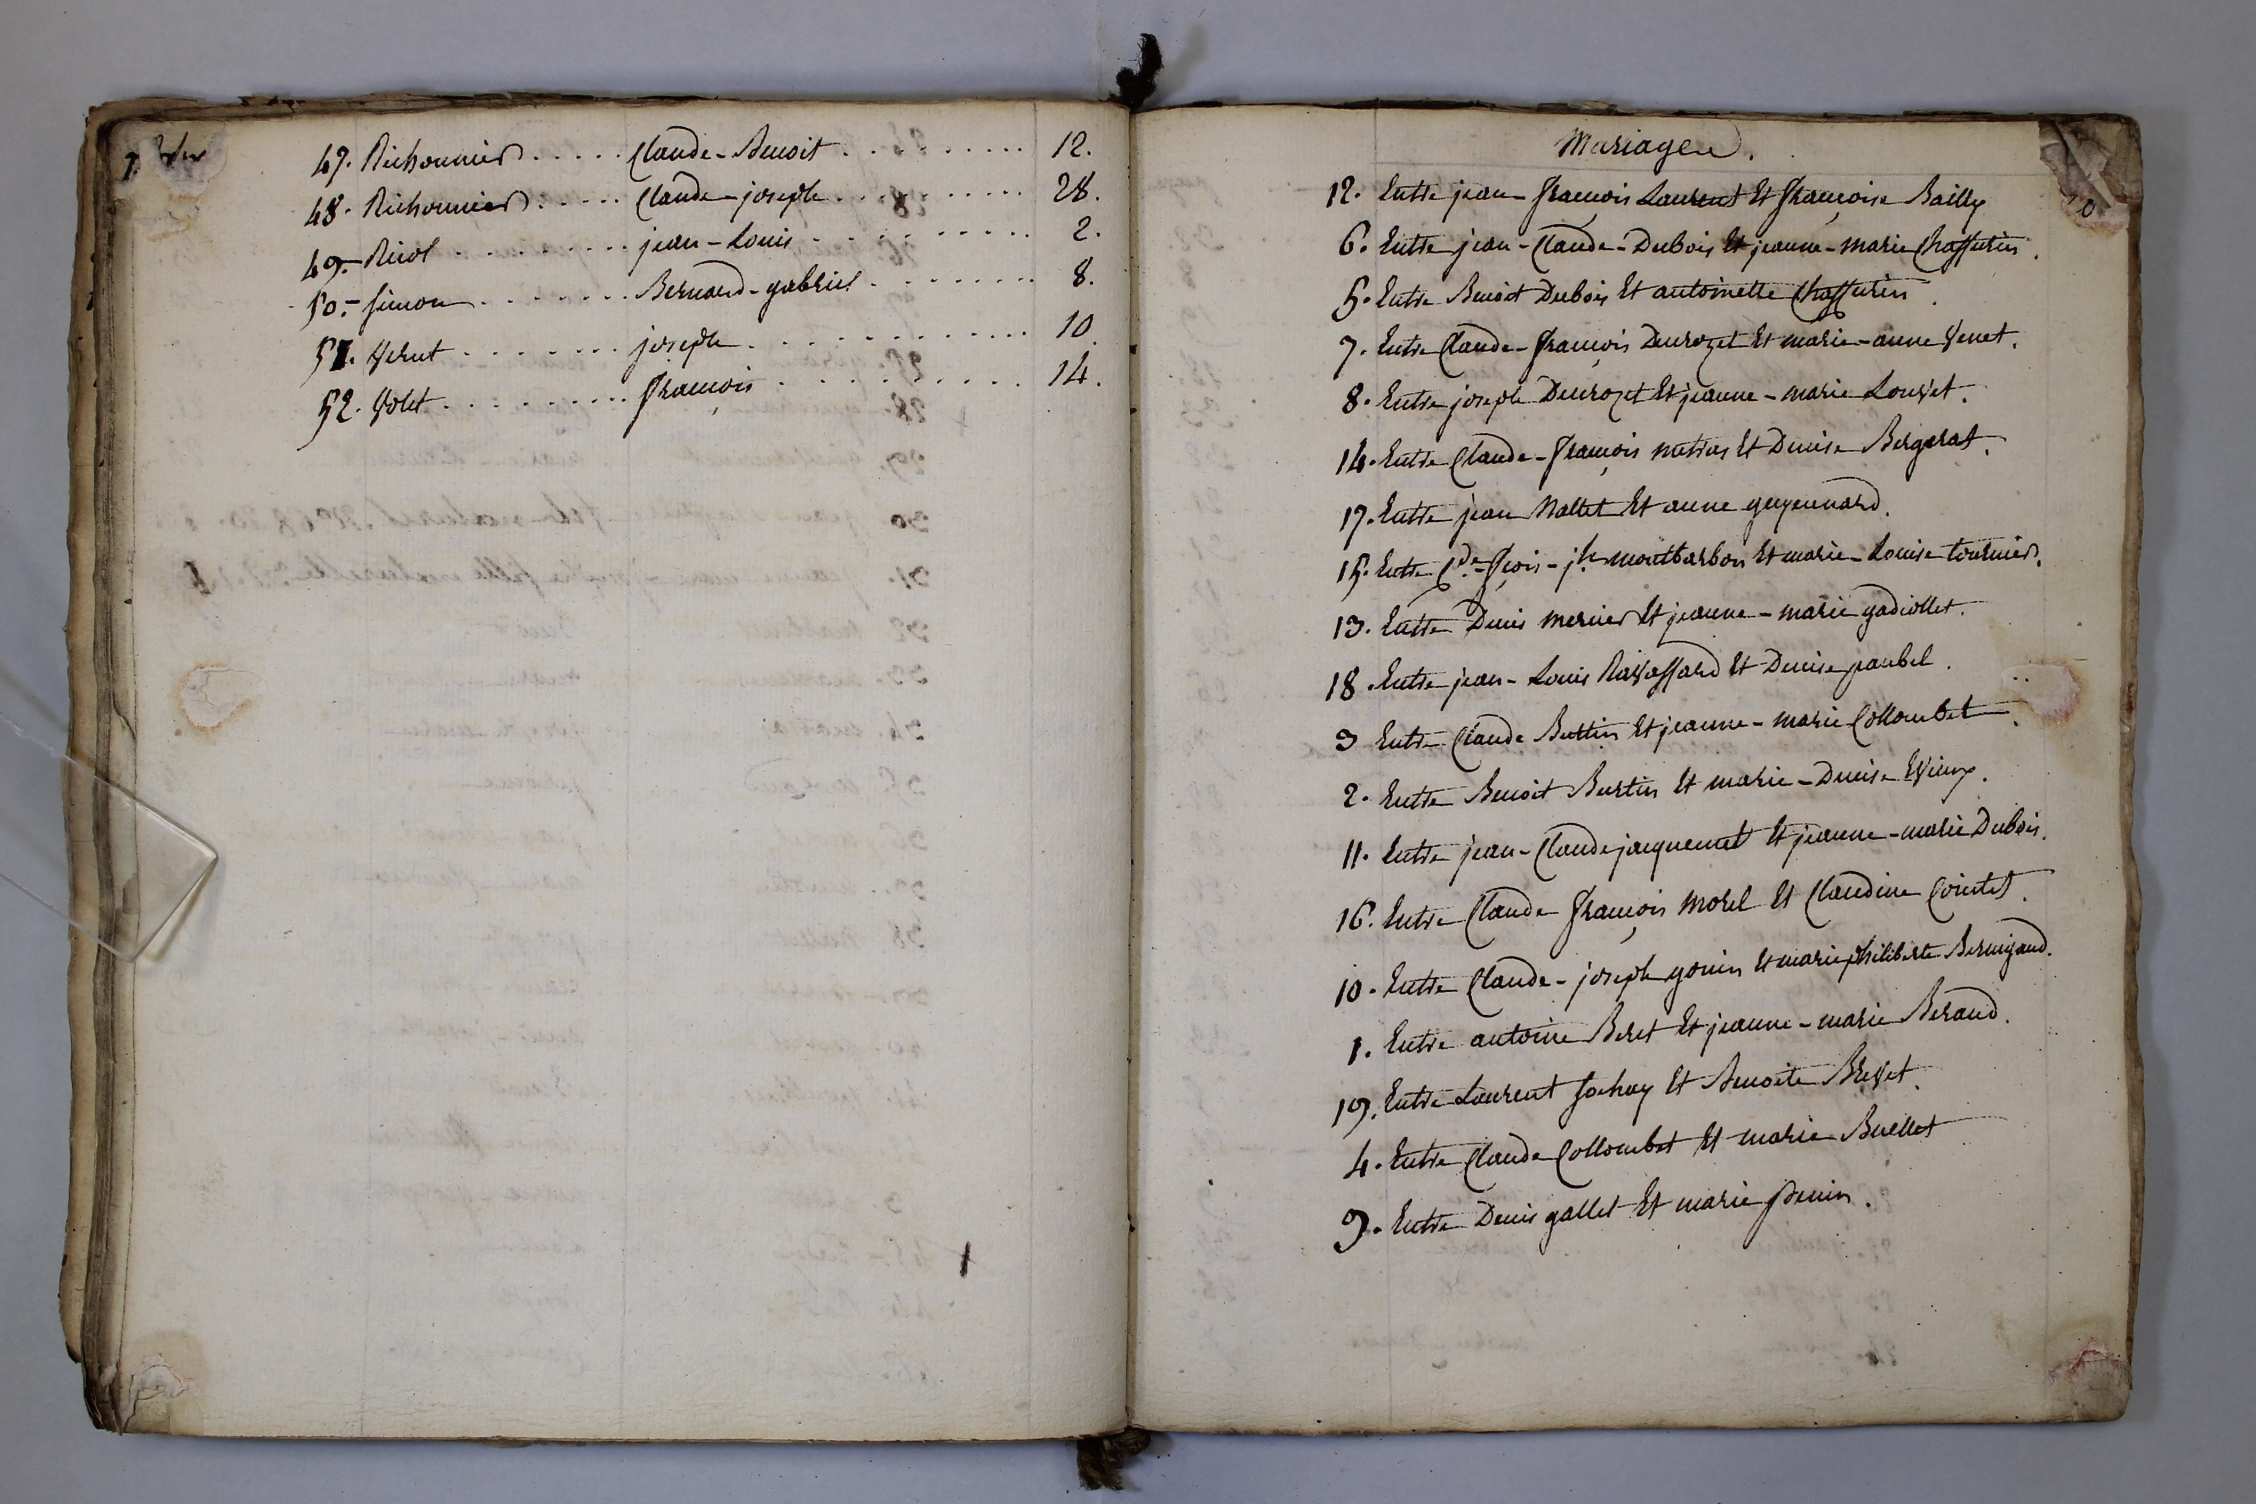 47. Richonnier ..... Claude-Benoit .......... 12.
48. Richonnier ..... Claude-joseph .......... 28.
49. Ricol ......... jean-Louis .......... 2.
50. Simon ....... Bernard-gabriel ........ 8.
51. Verut ....... joseph ............ 10.
52. Volet ......... François .......... 14.
Mariages.
12. Entre jean-François Laurent Et Françoise Bailly
6. Entre jean-Claude-Dubois Et jeanne-marie Chaffurin.
5. Entre Benoit Dubois Et antoinette Chaffurin.
7. Entre Claude-François Decrozet Et marie-anne Venet.
8. Entre joseph Decrozet Et jeanne-marie Louvet.
14. Entre Claude-François metras Et Denise Bergerat.
17. Entre jean Nallet Et anne guyennard.
15. Entre Cde-Fçois-jh montbarbon Et marie-Louise tournier.
13. Entre Denis mercier Et jeanne-marie gadiollet.
18. Entre jean-Louis Ravassard Et Denise paubel.
3 Entre Claude Buttin Et jeanne-marie Collombet.
2. Entre Benoit Burtin Et marie-Denise
11. Entre jean-Claude jacquemet Et jeanne-marie Dubois.
16. Entre Claude François morel Et Claudine Cointet.
10. Entre Claude-joseph gonin Et marie philiberte Bernigaud.
1. Entre antoine Beret Et jeanne-marie Beraud.
19. Entre Laurent Sochay Et Benoite Brevet.
4. Entre Claude Collombet Et marie Buellet
9. Entre Denis gallet Et marie